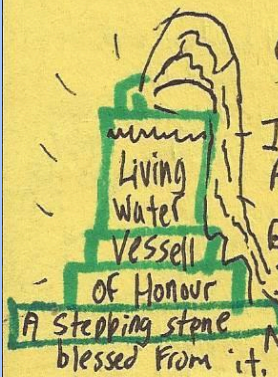 Living
Water
Vessell
of Honour
A Stepping stone
blessed From it,